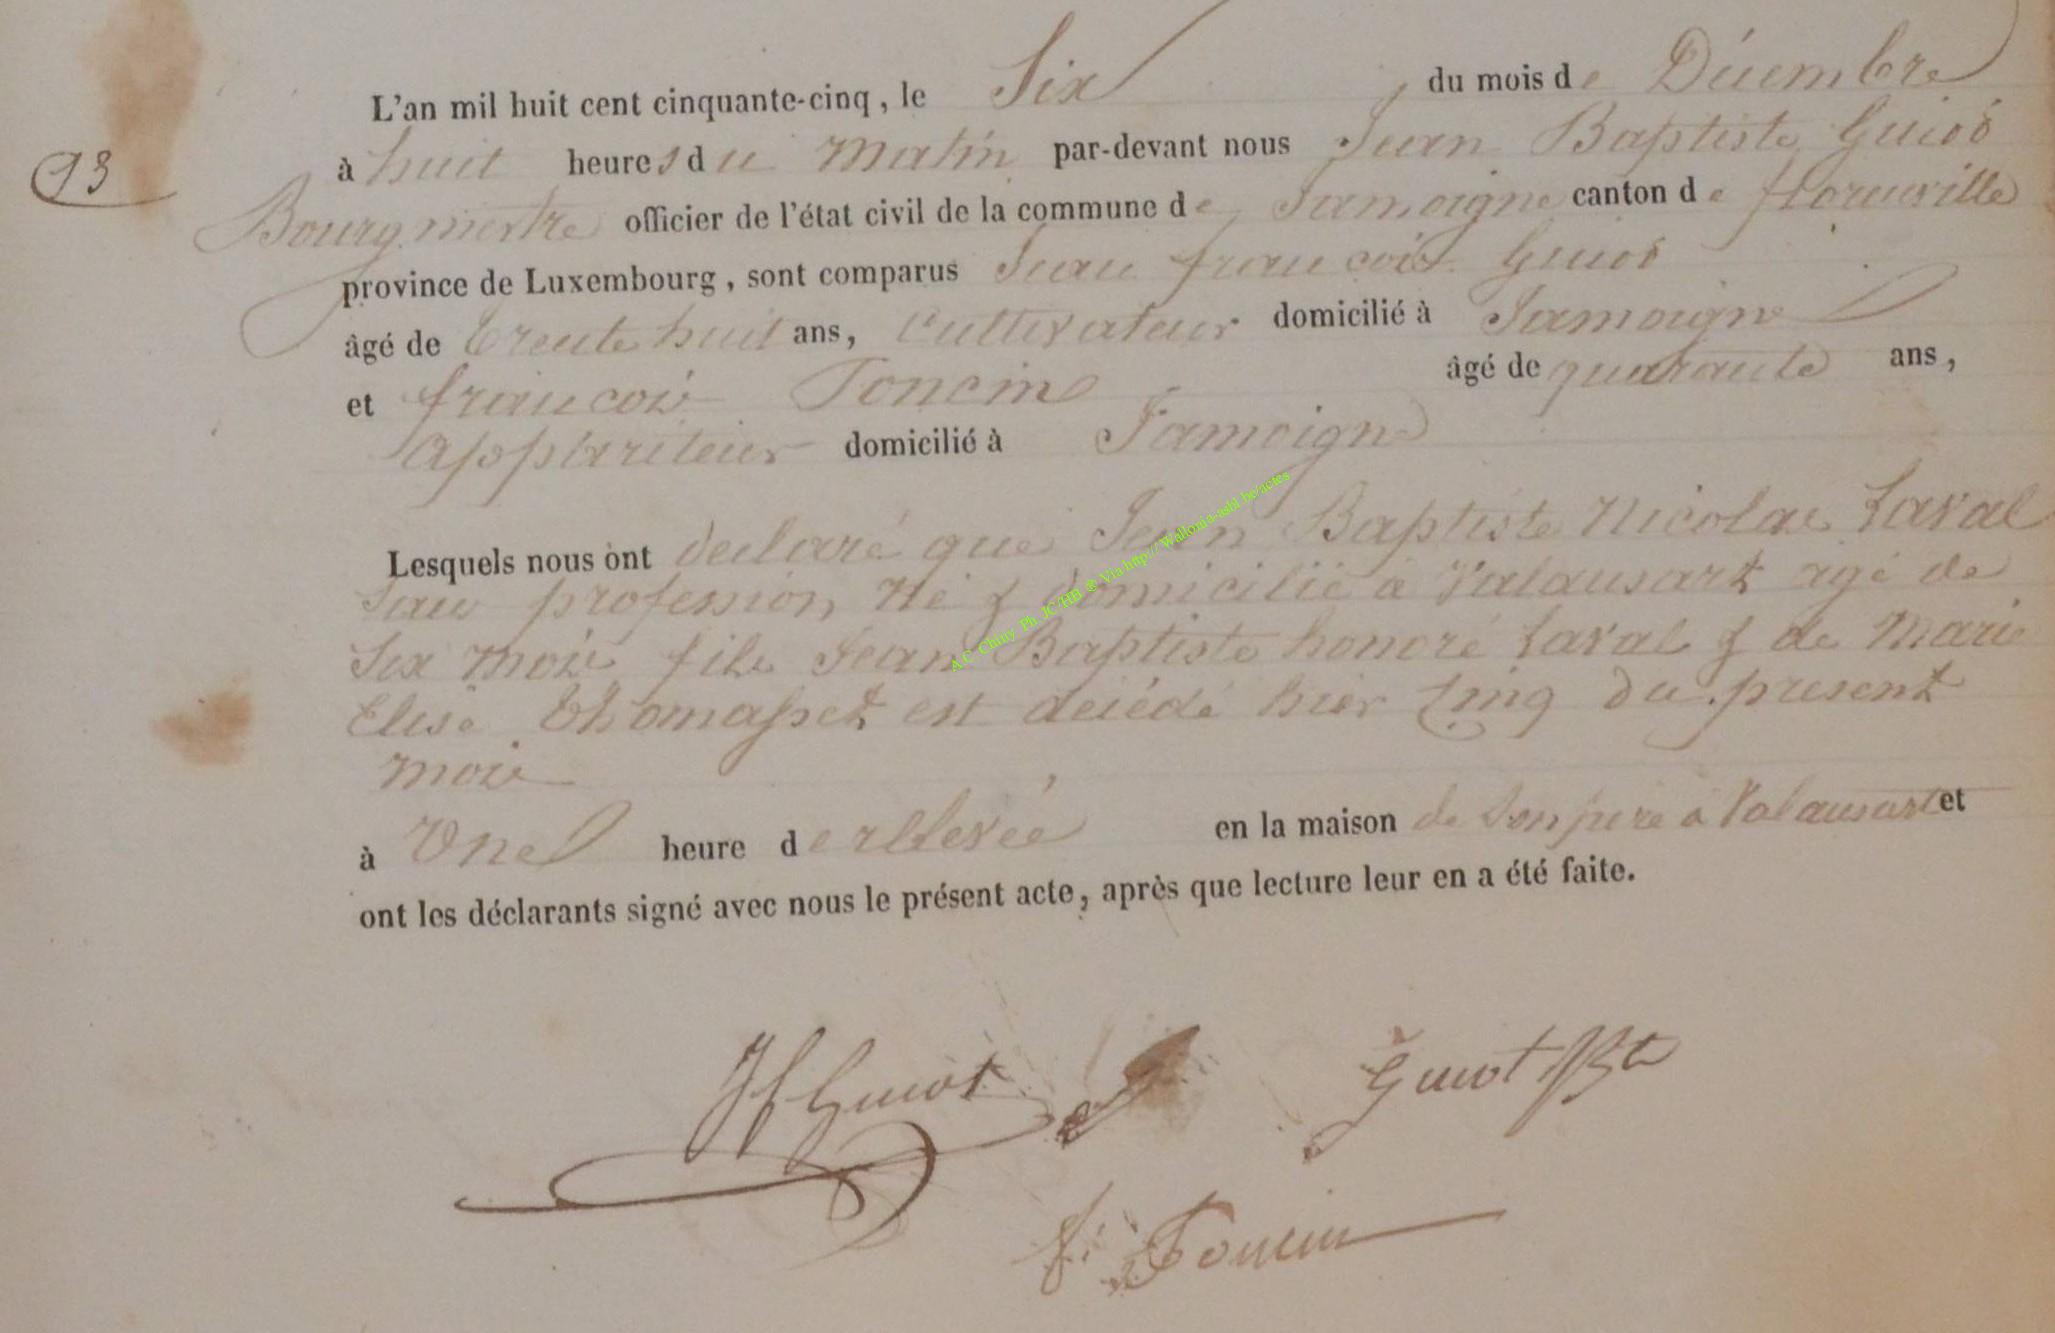 L'an mil huit cent cinquante-cinq, le Six du mois de Décembre
13
à huit heures du matin par-devant nous Jean Baptiste Guiot
Bourgmestre officier de l'état civil de la commune de Jamoigne canton de florenville
province de Luxembourg, sont comparus Jean francois Guiot
âgé de trente huit ans, Cultivateur domicilié à Jamoigne
et francois Poncin âgé de quarante ans,
appariteur domicilié à Jamoigne
Lesquels nous ont declaré que Jean Baptiste Nicolas Laval
sans profession, né & domicilié à Valansart agé de
Six mois fils Jean Baptiste honoré Laval & de Marie
Elise Thomasset est décédé hier Cinq du present
mois
à Une heure de relevée en la maison de son pere à Valansart et
ont les déclarants signé avec nous le présent acte, après que lecture leur en a été faite.
A.C. Chiny Ph. JC/HH ® Via http://Wallonie-asbl.be/actes
JfGuiot Guiot JBte
f. Poncin